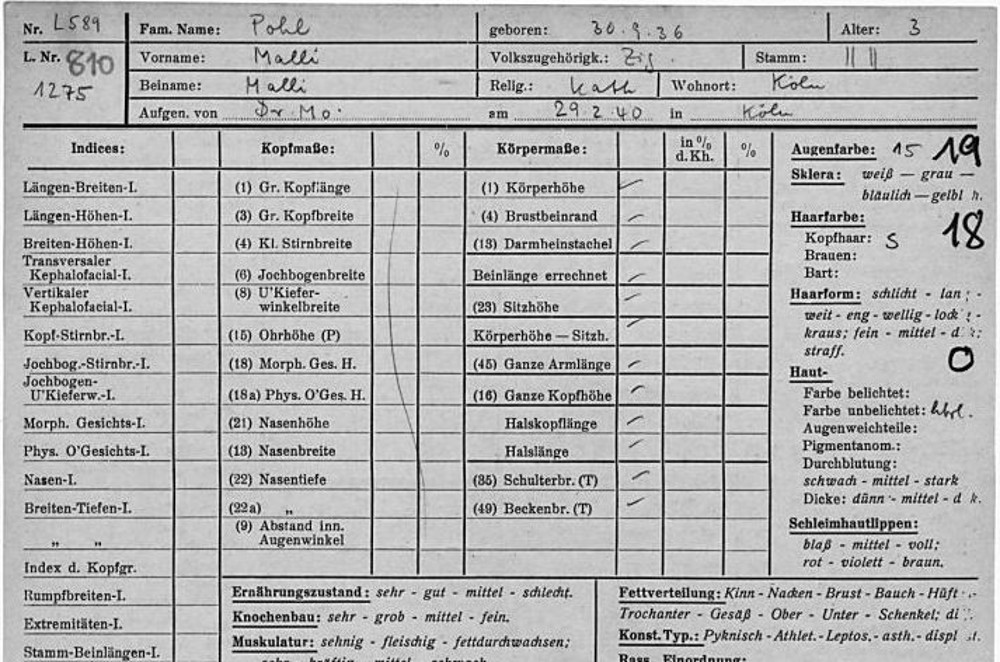 Nr. L589 Fam. Name: Pohl geboren: 30.9.36 Alter: 3
L. Nr. 810 Vorname: Malli Volkszugehörigk.: Zig. Stamm:
1275 Beiname: Malli Relig.: Kath Wohnort: Köln
Aufgen. von Dr. Mo. am 29.2.40 in Köln
Indices: Kopfmaße: % Körpermaße: in % d. Kh. % Augenfarbe: 15 19
Längen-Breiten-I. (1) Gr. Kopflänge (1) Körperhöhe Sklera: weiß — grau —
bläulich — gelbl
Längen-Höhen-I. (3) Gr. Kopfbreite (4) Brustbeinrand Haarfarbe: 18
Breiten-Höhen-I. (4) Kl. Stirnbreite (13) Darmheinstachel Kopfhaar: S
Brauen:
Transversaler
Kephalofacial-I. (6) Jochbogenbreite Beinlänge errechnet Bart:
Vertikaler (8) U'Kiefer-
Kephalofacial-I. winkelbreite (23) Sitzhöhe Haarform: schlicht -
weit - eng - wellig -
Kopf-Stirnbr.-I. (15) Ohrhöhe (P) Körperhöhe — Sitzh. kraus; fein - mittel -
straff.
Jochbog.-Stirnbr.-I. (18) Morph. Ges. H. (45) Ganze Armlänge Haut- 0
Jochbogen-
U'Kieferw.-I. (18a) Phys. O'Ges. H. (16) Ganze Kopfhöhe Farbe belichtet:
Farbe unbelichtet:
Morph. Gesichts-I. (21) Nasenhöhe Halskopflänge Augenweichteile:
Pigmentanom.:
Phys. O'Gesichts-I. (13) Nasenbreite Halslänge Durchblutung:
Nasen-I. (22) Nasentiefe (35) Schulterbr. (T) schwach - mittel - stark
Dicke: dünn - mittel -
Breiten-Tiefen-I. (22a) „ (49) Beckenbr. (T)
Schleimhautlippen:
„ „ (9) Abstand inn.
Augenwinkel blaß - mittel - voll;
rot - violett - braun.
Index d. Kopfgr.
Rumpfbreiten-I. Ernährungszustand: sehr - gut - mittel - schlecht. Fettverteilung: Kinn - Nacken - Brust - Bauch - Hüft
Knochenbau: sehr - grob - mittel - fein. Trochanter - Gesäß - Ober - Unter - Schenkel;
Extremitäten-I. Muskulatur: sehnig - fleischig - fettdurchwachsen; Konst. Typ.: Pyknisch - Athlet. - Leptos. - asth. -
Stamm-Beinlängen-I. sehr - kräftig - mittel - schwach. Rass. Einordnung: